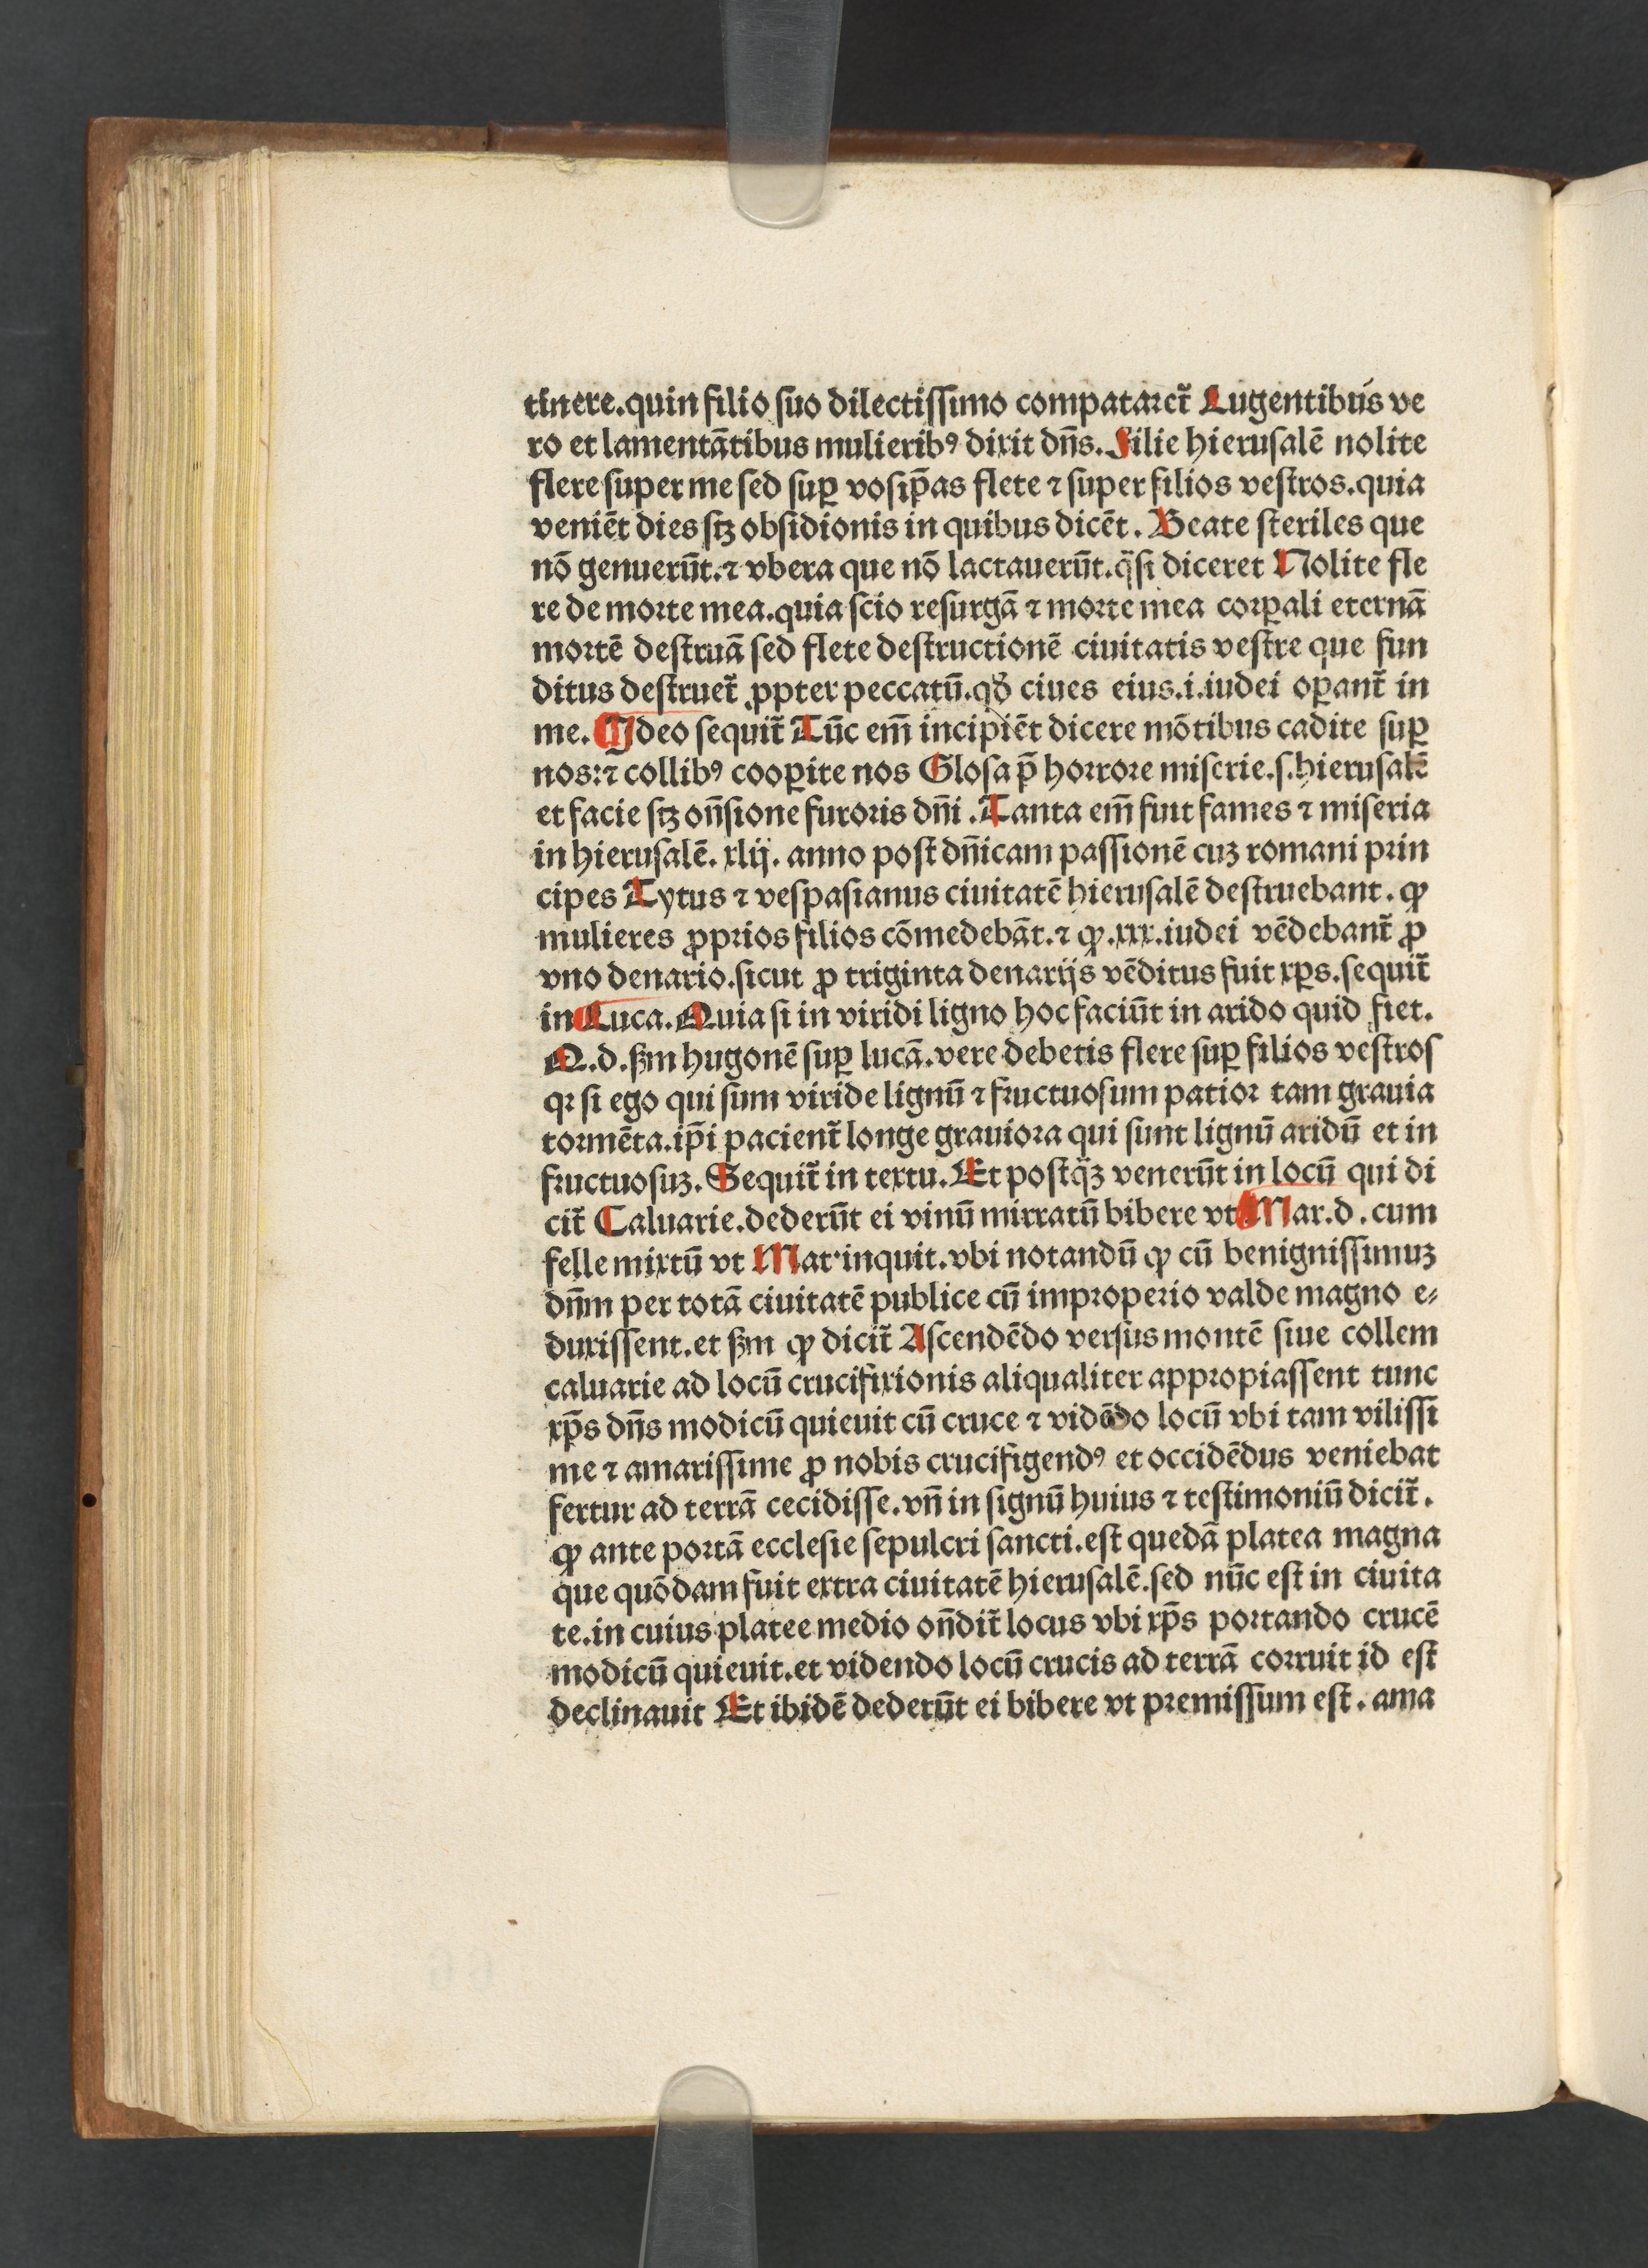 tinere.quin filio ſuo dilectiſſimo compatarct᷑ Lugentibus ve
ro et lamentātibus mulieribꝰ dixit dn̄s. Filie hieruſalē nolite
flere ſuper me ſed ſuꝑ voſip̄as flete ⁊ ſuper filios veſtros.quia
veniēt dies ſtꝫ obſidionis in quibus dicēt. Beate ſteriles que
nō genuerūt.⁊ vbera que nō lactauerūt.q̈ſi diceret Nolite fle
re de moꝛte mea.quia ſcio reſurgā ⁊ moꝛte mea coꝛꝑali eternā
moꝛtē deſtruā ſed flete deſtructionē ciuitatis veſtre que fun
ditus deſtruet᷑ ꝓpter peccatū.qd̛ ciues eius.i.iudei oꝑant᷑ in
me. Ideo ſequit᷑ Tūc em̄ incipiēt dicere mōtibus cadite ſuꝑ
nos:⁊ collibꝰ cooꝑite nos Gloſa p̄ hoꝛroꝛe miſerie.ſ.hieruſalē
et facie ſtꝫ on̄ſione furoꝛis dn̄i . Tanta em̄ fuit fames ⁊ miſeria
in hieruſalē. xlij. anno poſt dn̄icam paſſionē cuꝫ romani pꝛin
cipes Tytus ⁊ veſpaſianus ciuitatē hieruſalē deſtruebant. ꝙ
mulieres ꝓpꝛios filios cōmedebāt.⁊ ꝙ.xxx.iudei vēdebant᷑ ꝓ
vno denario.ſicut ꝓ triginta denarijs vēditus fuit xp̄s.ſequit᷑
in Luca. Quia ſi in viridi ligno hoc faciūt in arido quid fiet.
Q.d.ẜm hugonē ſuꝑ lucā.vere debetis flere ſuꝑ filios veſtroſ
qꝛ ſi ego qui ſum viride lignū ⁊ fructuoſum patioꝛ tam grauia
toꝛmēta.ip̄i pacient᷑ longe grauioꝛa qui ſunt lignū aridū et in
fructuoſuꝫ. Sequit᷑ in textu. Et poſtq̈ꝫ venerūt in locū qui di
cit᷑ Caluarie.dederūt ei vinū mirratū bibere vt Mar.d. cum
felle mixtū vt Mat·inquit.vbi notandū ꝙ cū benigniſſimuꝫ
dn̄m per totā ciuitatē publice cū impꝛoperio valde magno e⸗
duxiſſent.et ẜm ꝙ dicit᷑ Aſcendēdo verſus montē ſiue collem
caluarie ad locū crucifixionis aliqualiter appꝛopiaſſent tunc
xp̄s dn̄s modicū quieuit cū cruce ⁊ vidēdo locū vbi tam viliſſi
me ⁊ amariſſime ꝓ nobis crucifigendꝰ et occidēdus veniebat
fertur ad terrā cecidiſſe.vn̄ in ſignū huius ⁊ teſtimoniū dicit᷑.
ꝙ ante poꝛtā eccleſie ſepulcri ſancti.eſt quedā platea magna
que quōdam fuit extra ciuitatē hieruſalē.ſed nūc eſt in ciuita
te.in cuius platee medio on̄dit᷑ locus vbi xp̄s poꝛtando crucē
modicū quieuit.et videndo locū crucis ad terrā coꝛruit id eſt
declinauit Et ibidē dederūt ei bibere vt pꝛemiſſum eſt. ama